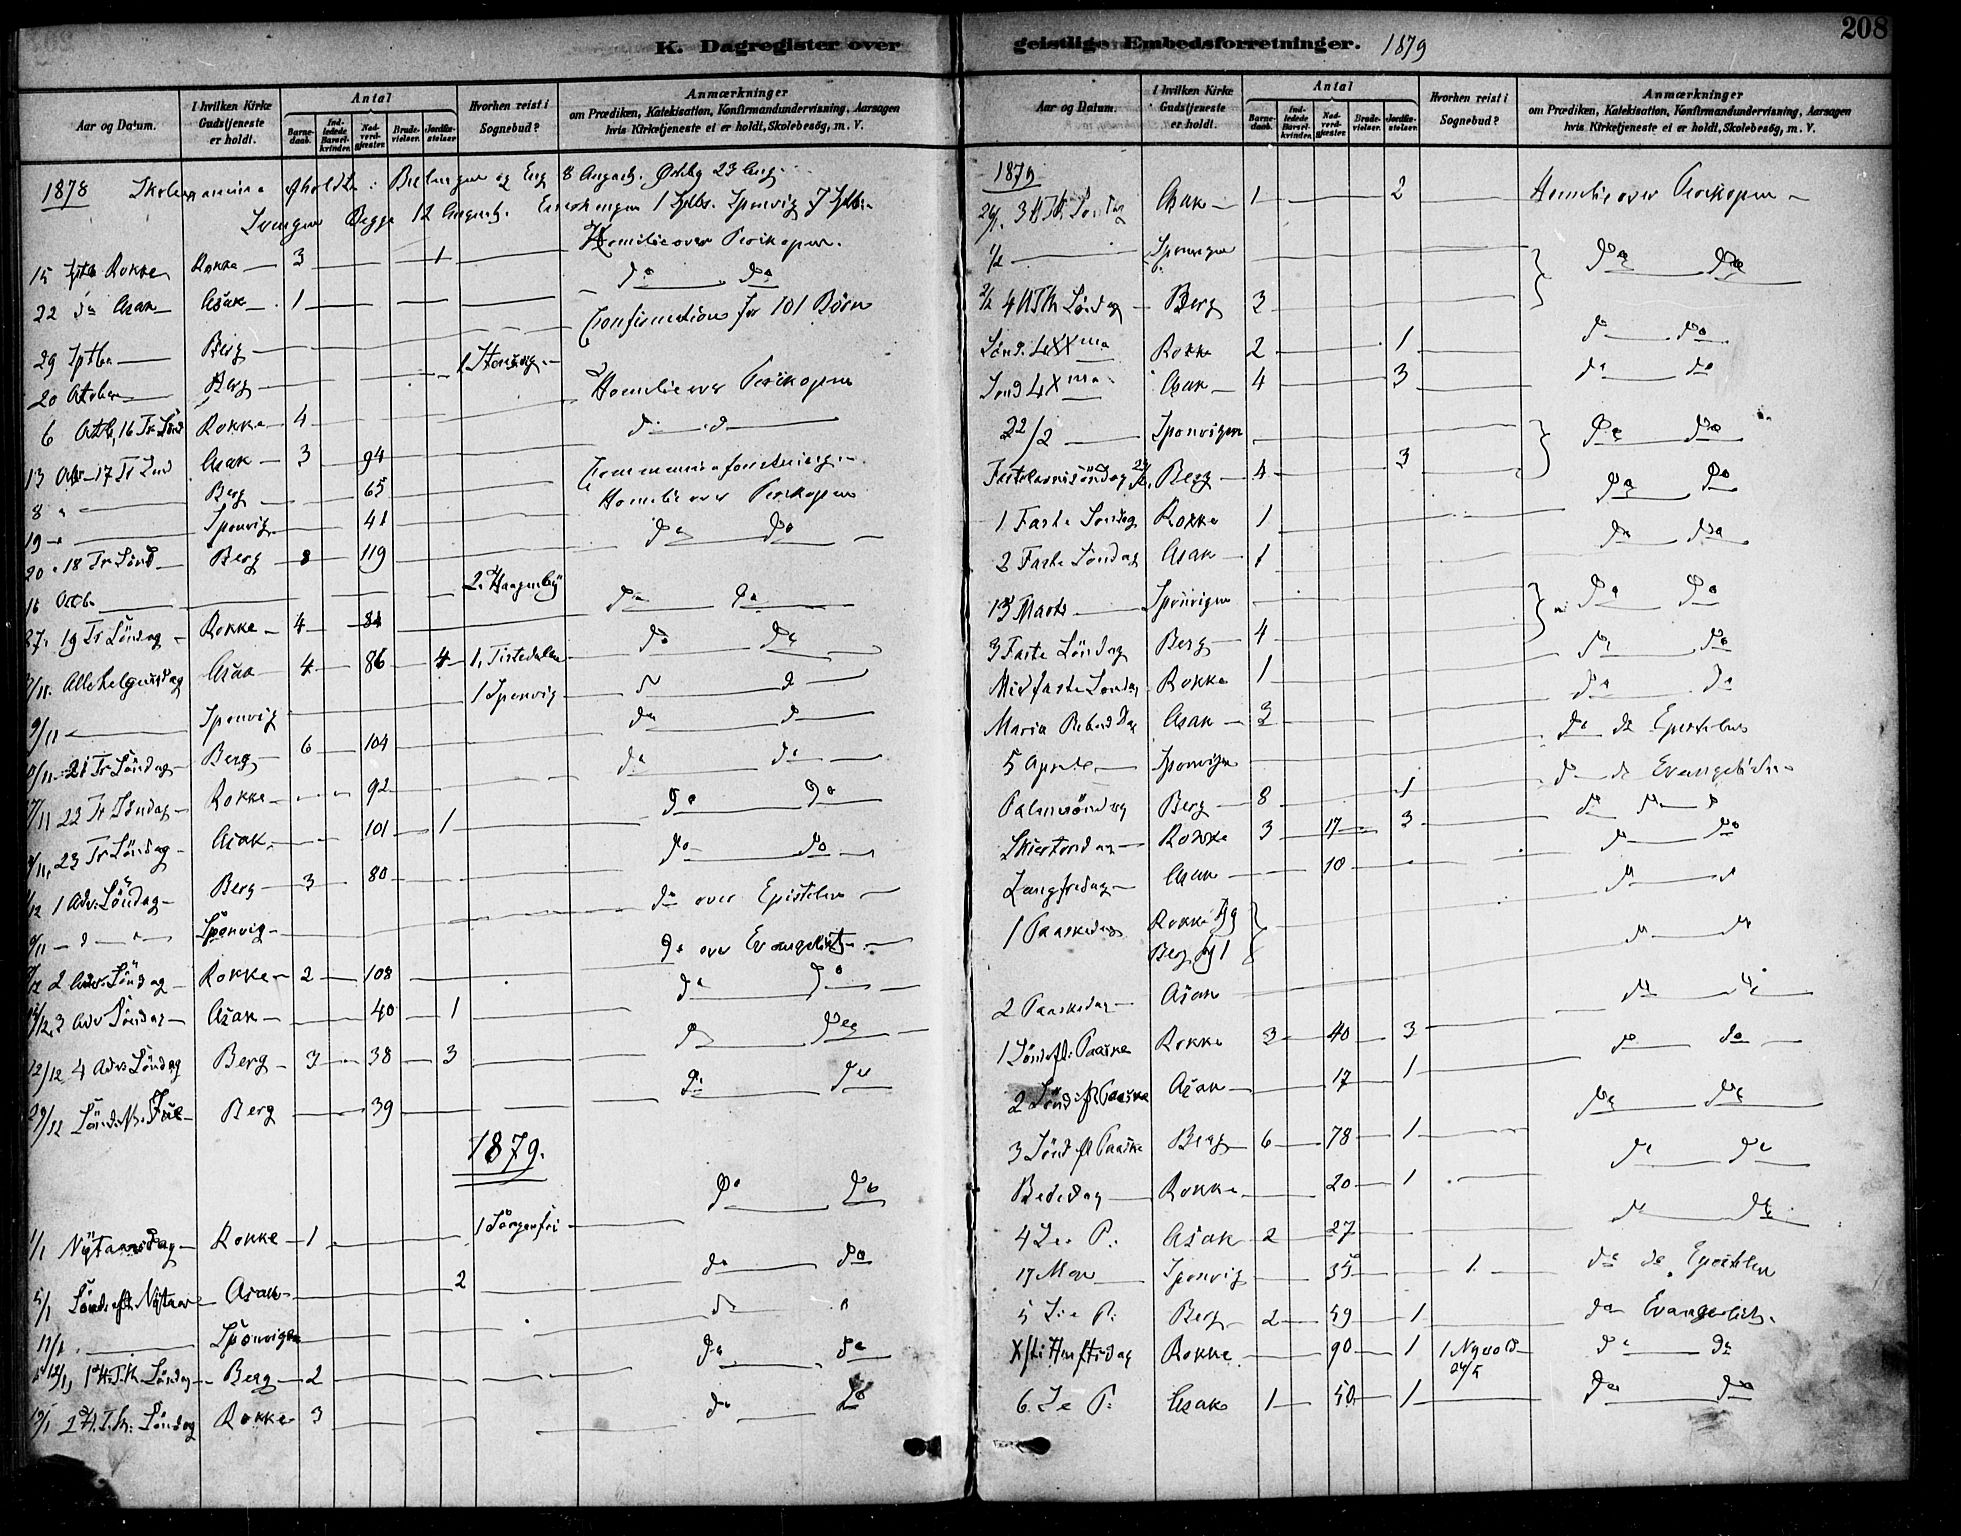 K. Dagregister over
Aar og Datum. I hvilken Kirke Gudstjeneste er holdt. Antal Barnedaab. Indledede Barselkvinder. Nadverdgjæster. Brudevielser. Jordfæstelser Hvorhen reist i Sognebud? Anmærkninger om Prædiken, Katekisation, Konfirmandundervisning, Aarsagen hvis Kirketjeneste ei er holdt, Skolebesög, m. V.
1878 og Eng 8 August. 23 Aug.
12 August. 1 Sptbr. Sponvig 7 Sptbr.
15 Sptb Rokke Rokke 3 1 Homilie over Perikopen.
22 do Asak Asak 1 do do
29 Sptbr Berg Confirmation for 101 Börn
20 October Berg 1
6 Octb. 16 Tr Sönd Rokke 4 Homilie over Perikopen
13 Octbr 17 Tr Sönd Asak 3 94 d d
8 " Berg 65
19 " Sponvig 41 Homilie over Perikopen
20 " 18 Tr Sönd Berg 8 119 do do
16 Octbr 2 Haagenby
27. 19 Tr Söndag Rokke 4 84 do do
Allehelgensdag Asak 4 86 4 1. Tistedalen do do
1 Sponvig
9/11 Sponvig d d
21 Tr Söndag Berg 6 104 do d
22 Tr Söndag Rokke 92 do do
23 Tr Söndag Asak 101 1 do do
1 Adv. Söndag Berg 3 80 do do
Sponvig do over Epistelen
2 Adv. Söndag Rokke 2 108 do over Evangeliet
3 Adv Söndag Asak 40 1 do do
4 Adv. Söndag Berg 3 38 3 do do
29/12 Sönd. M. Jul Berg 39 do do
1879.
1/1 Nytaarsdag Rokke 1 1 Sörgenfri do do
5/1 Sönd. eft. Nytaar Asak 2 do do
11/1 Sponvigen do "
12/1 1 H. T. K. Söndag Berg 2 do do
19/1 2 H. T. K. Söndag Rokke 3 do do
geistlige Embedsforretninger. 1879
208
Aar og Datum. I hvilken Kirke Gudstjeneste er holdt. Antal Barnedaab. Indledede Barselkvinder. Nadverdgjæster. Brudevielser. Jordfæstelser. Hvorhen reist i Sognebud? Anmærkninger om Prædiken, Katekisation, Konfirmandundervisning, Aarsagen hvis Kirketjeneste ei er holdt, Skolebesög, m. V.
1879
26/1. 3 H T K Söndag Asak 1 2 Homilie over Perikopen
1/2 Sponvigen do do
2/2 4 H T K Söndag Berg 3
Sönd. LXX ma Rokke 2 1 do do
Sönd LX ma Asak 4 3 do do
22/2 Sponvigen do do
Fastelavnssöndag Berg 4 3
1 Faste Söndag Rokke 1 do do
2 Faste Söndag Asak 1 do do
13 Marts Sponvigen do do
3 Faste Söndag Berg 4
Midfaste Söndag Rokke 1 do do
Maria Bebud Dag Asak 3 do do
5 April Sponvigen do do Epistelen
Palmesöndag Berg 8 1 do do Evangeliet
Skiertorsdag Rokke 3 17 3 do do
Langfredag Asak 10 do do
1 Paaskedag Rokke
Berg
2 Paaskedag Asak do do
1 Sönd eft. Paaske Rokke 3 40 3 do do
2 Sönd eft Paaske Asak 17 1 do do
3 Sönd eft Paaske Berg 6 78 1 do do
Bededag Rokke 20 1 do do
4 S. e P. Asak 2 27 do do
17 Mai Sponvig 35 1 do do Epistelen
5 S. e P. Berg 2 59 1 do Evangeliet.
X sti Himftsdag Rokke 90 1 do do
6. S e P. Asak 1 50 1 do do